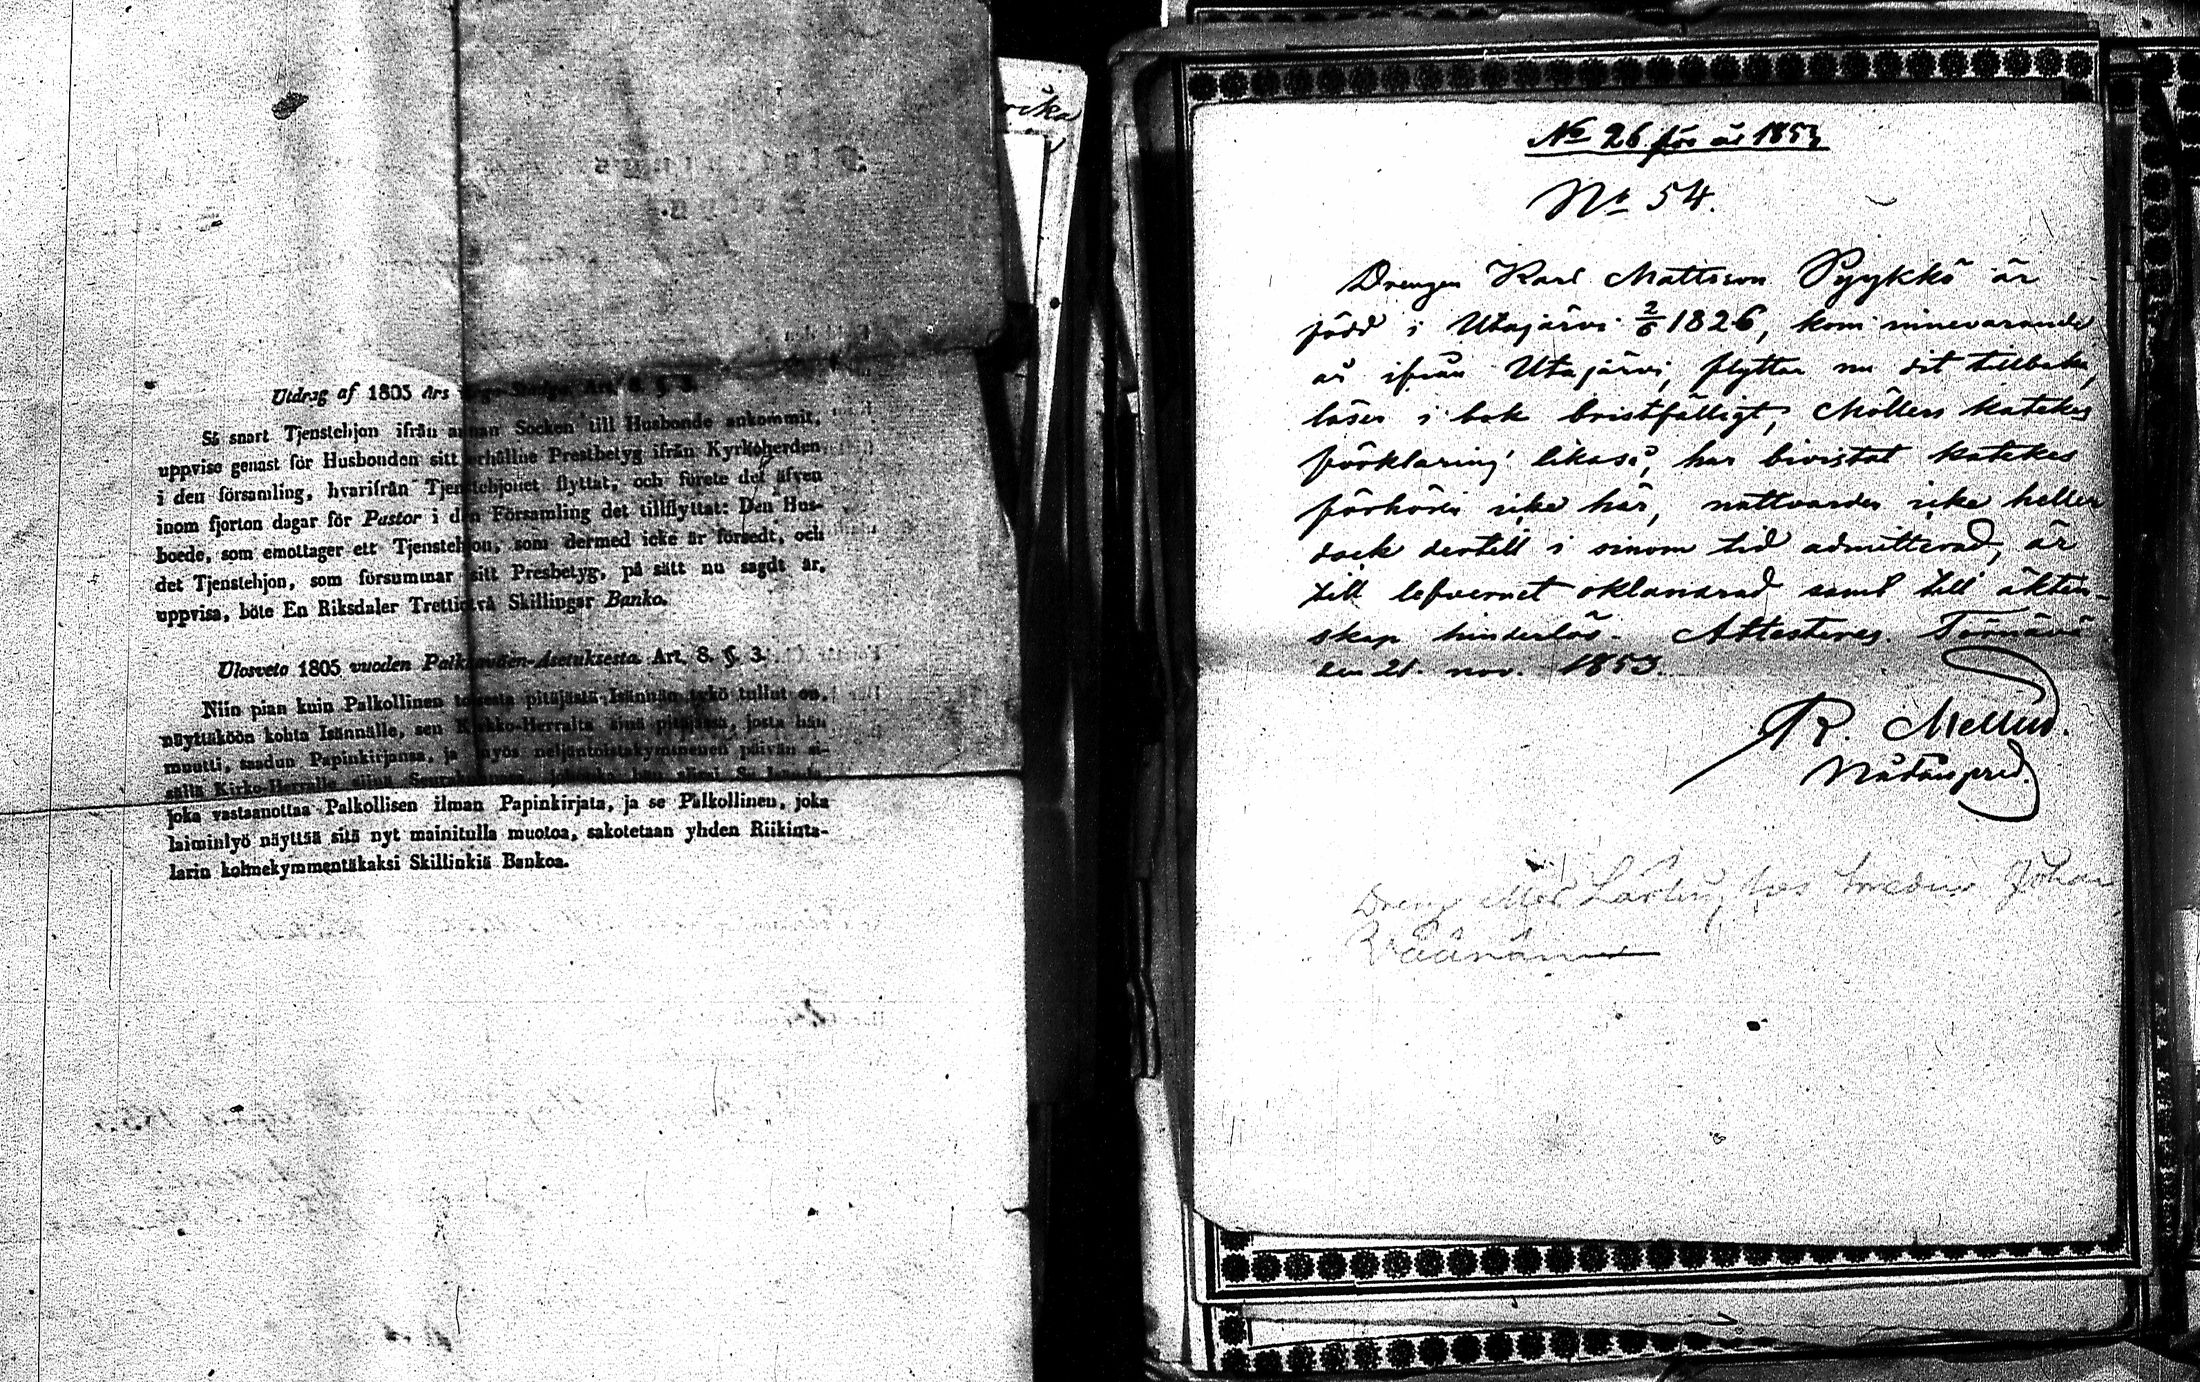 Utdrag af 1805 års Art. 8. §. 3.
Så snart Tjenstehjon ifrån annan Socken till Husbonde ankommit,
uppvise genast för Husbonden sitt erhållne Prestbetyg ifrån Kyrkoherden
i den församling, hvarifrån Tjenstehjonet flyttat, och förete det äfven
inom fjorton dagar för Pastor i den Församling det tillflyttat: Den Hus-
boede, som emottager ett Tjenstehjon, som dermed icke är försedt, och
det Tjenstehjon, som försummar sitt Presbetyg, på sätt nu sagdt är,
uppvisa, böte En Riksdaler Trettiotvå Skillingar Banko.
Ulosveto 1805 vuoden Palkkawäen-Asetuksesta Art. 8. §. 3.
Niin pian kuin Palkollinen toisesta pitäjästä Isännän tykö tullut on,
näyttäköön kohta Isännälle, sen Kirkko-Herralta siinä pitäjässä, josta hän
muutti, saadun Papinkirjansa, ja myös neljäntoistakymmenen päivän si-
sällä Kirko-Herralle siinä
joka vastaanottaa Palkollisen ilman Papinkirjata, ja se Palkollinen, joka
laiminlyö näyttää sitä nyt mainitulla muotoa, sakotetaan yhden Riikinta-
larin kolmekymmentäkaksi Skillinkiä Bankoa.
rika
No 26 för år 1853
No 54.
Drengen Karl Mattsson Pyykkö är
född i Utajärvi 2/6 1826, kom innevarande
år ifrån Utajärvi, flyttar nu dit tillbaka,
läser i bok bristfälligt, Möllers katekes
förklaring likaså, har bivistat katekes
förhören icke här, nattvarden icke heller
dock dertill i sinom tid admitterad, är
till lefvernet oklandrad samt till äkten-
skap hinderlös. Attesteras. Tyrnävä
den 21. nov. 1853.
R. Mellin.
Nådårspred.
Dreng eller Lärling hos Smeden Johan
Väänänen